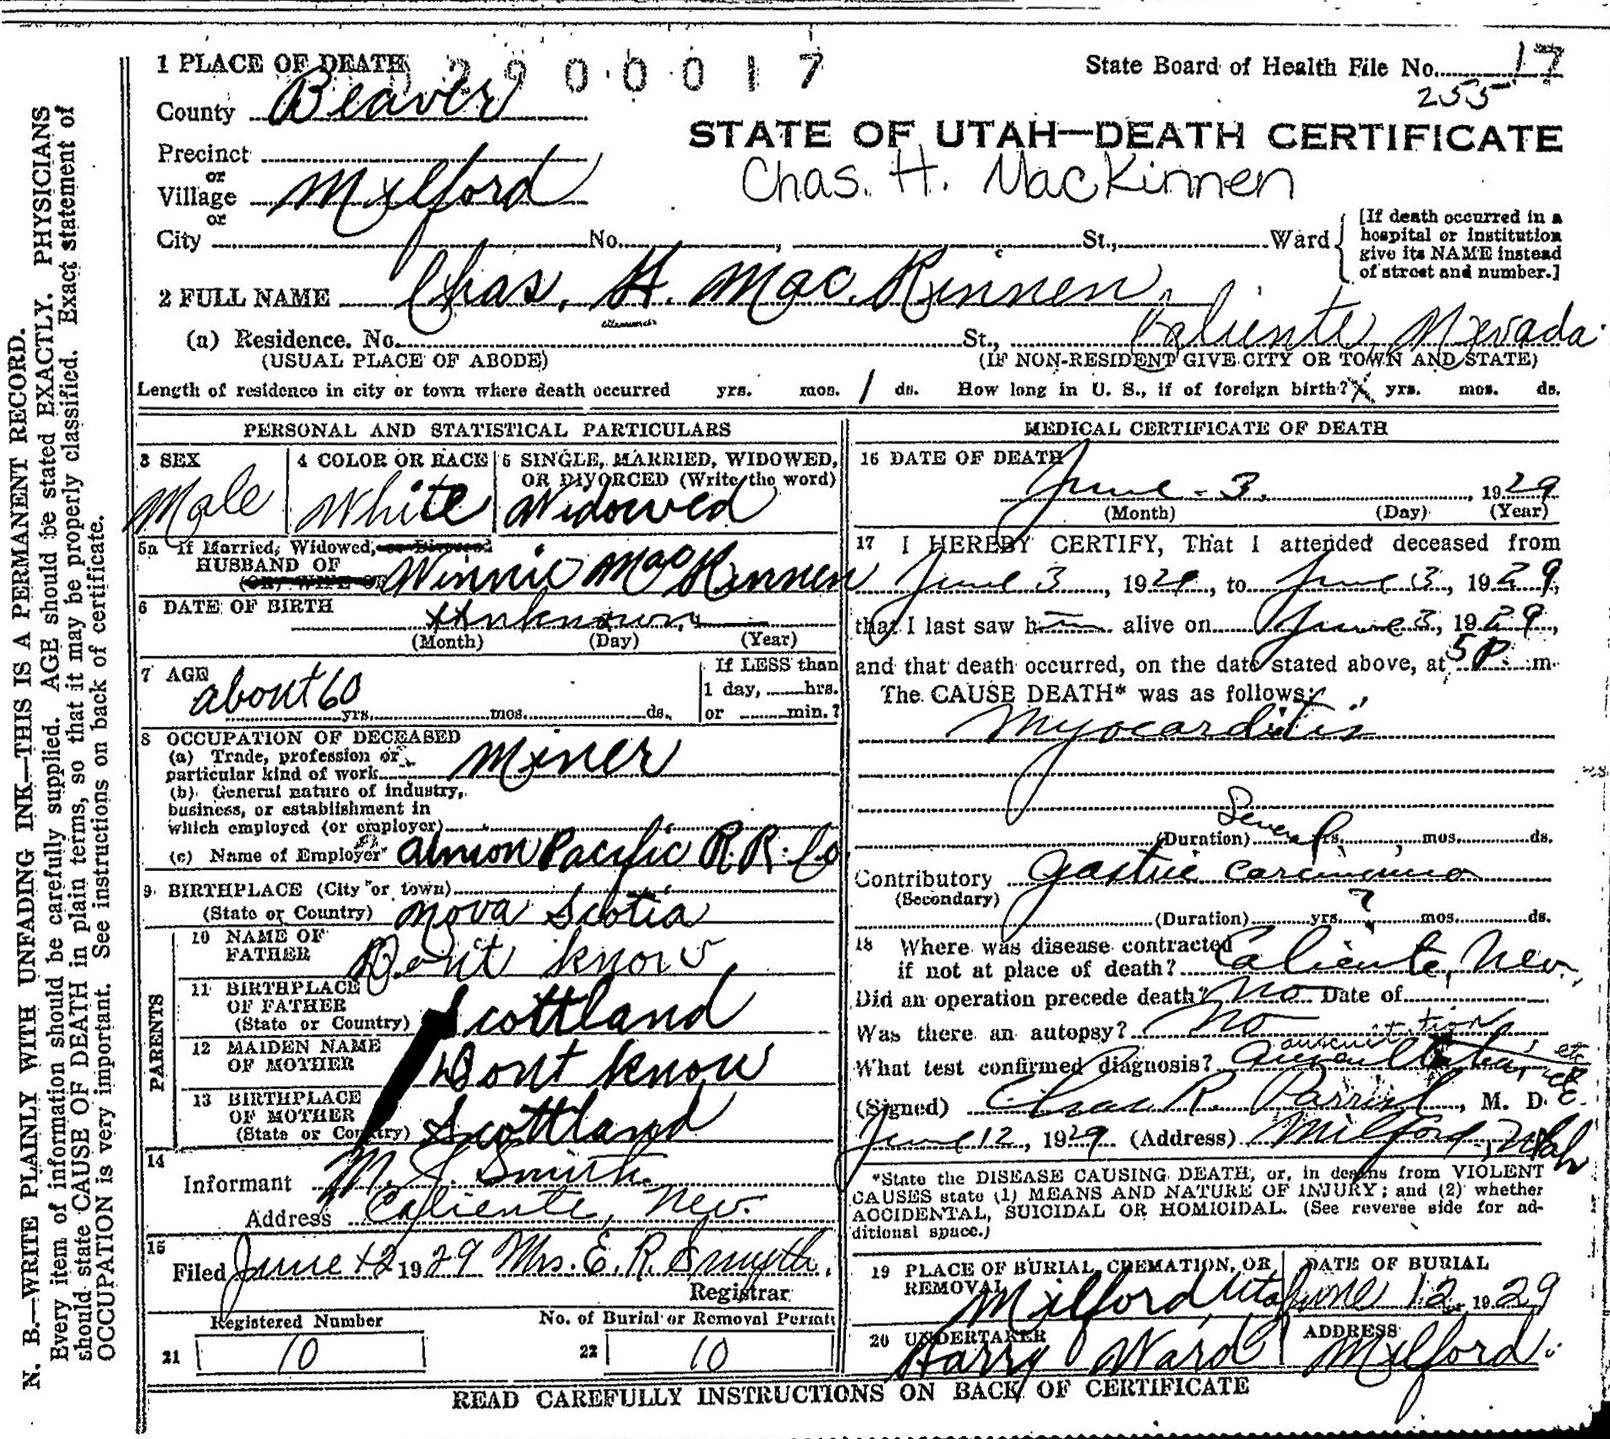 1 PLACE OF DEATH 2900017
State Board of Health File No. 17
255
County Beaver
STATE OF UTAH—DEATH CERTIFICATE
Precinct
or
Chas. H. MacKinnen
Village Milford
or
City No. , St., Ward
[If death occurred in a
hospital or institution
give its NAME instead
of street and number.]
2 FULL NAME Chas. H. Mac Kinnen
(a) Residence. No. St., Caliente, Nevada.
(USUAL PLACE OF ABODE) (IF NON-RESIDENT GIVE CITY OR TOWN AND STATE)
Length of residence in city or town where death occurred yrs. mos. 1 ds. How long in U. S., if of foreign birth? X yrs. mos. ds.
PERSONAL AND STATISTICAL PARTICULARS
3 SEX
Male
4 COLOR OR RACE
White
5 SINGLE, MARRIED, WIDOWED,
OR DIVORCED (Write the word)
Widowed
5a If Married, Widowed, or Divorced
HUSBAND OF
(OR) WIFE OF Winnie MacKinnen
6 DATE OF BIRTH Unknown
(Month) (Day) (Year)
7 AGE
about 60
yrs. mos. ds.
If LESS than
1 day, hrs.
or min.?
8 OCCUPATION OF DECEASED
(a) Trade, profession or
particular kind of work Miner
(b) General nature of industry,
business, or establishment in
which employed (or employer)
(c) Name of Employer Union Pacific R.R. Co
9 BIRTHPLACE (City or town)
(State or Country) Nova Scotia
PARENTS
10 NAME OF
FATHER Dont know
11 BIRTHPLACE
OF FATHER
(State or Country) Scottland
12 MAIDEN NAME
OF MOTHER Dont know
13 BIRTHPLACE
OF MOTHER
(State or Country) Scottland
14
Informant M. J. Smith
Address Caliente, Nev.
15
Filed June 12 1929 Mrs. E. R. Smyth.
Registrar
Registered Number
21 10
No. of Burial or Removal Permit
22 10
MEDICAL CERTIFICATE OF DEATH
16 DATE OF DEATH
June - 3. , 1929
(Month) (Day) (Year)
17 I HEREBY CERTIFY, That I attended deceased from
June 3 , 1929, to June 3, 1929,
that I last saw him alive on June 3, 1929,
and that death occurred, on the date stated above, at 5 P. m.
The CAUSE DEATH* was as follows:
Myocarditis
(Duration) Several yrs. mos. ds.
Contributory Gastric carcinoma
(Secondary)
(Duration) yrs. ? mos. ds.
18 Where was disease contracted
if not at place of death? Caliente, Nev.,
Did an operation precede death? No Date of
Was there an autopsy? No
auscultation
What test confirmed diagnosis? Auscultation etc
(Signed) Chas R. Parrish, M. D.
June 12, 1929 (Address) Milford, Utah
*State the DISEASE CAUSING DEATH, or, in deaths from VIOLENT
CAUSES state (1) MEANS AND NATURE OF INJURY; and (2) whether
ACCIDENTAL, SUICIDAL OR HOMICIDAL. (See reverse side for ad-
ditional space.)
19 PLACE OF BURIAL, CREMATION, OR
REMOVAL
Milford Utah
DATE OF BURIAL
June 12 1929
20 UNDERTAKER
Harry Ward
ADDRESS
Milford.
READ CAREFULLY INSTRUCTIONS ON BACK OF CERTIFICATE
N. B.—WRITE PLAINLY WITH UNFADING INK—THIS IS A PERMANENT RECORD.
Every item of information should be carefully supplied. AGE should be stated EXACTLY. PHYSICIANS
should state CAUSE OF DEATH in plain terms, so that it may be properly classified. Exact statement of
OCCUPATION is very important. See instructions on back of certificate.